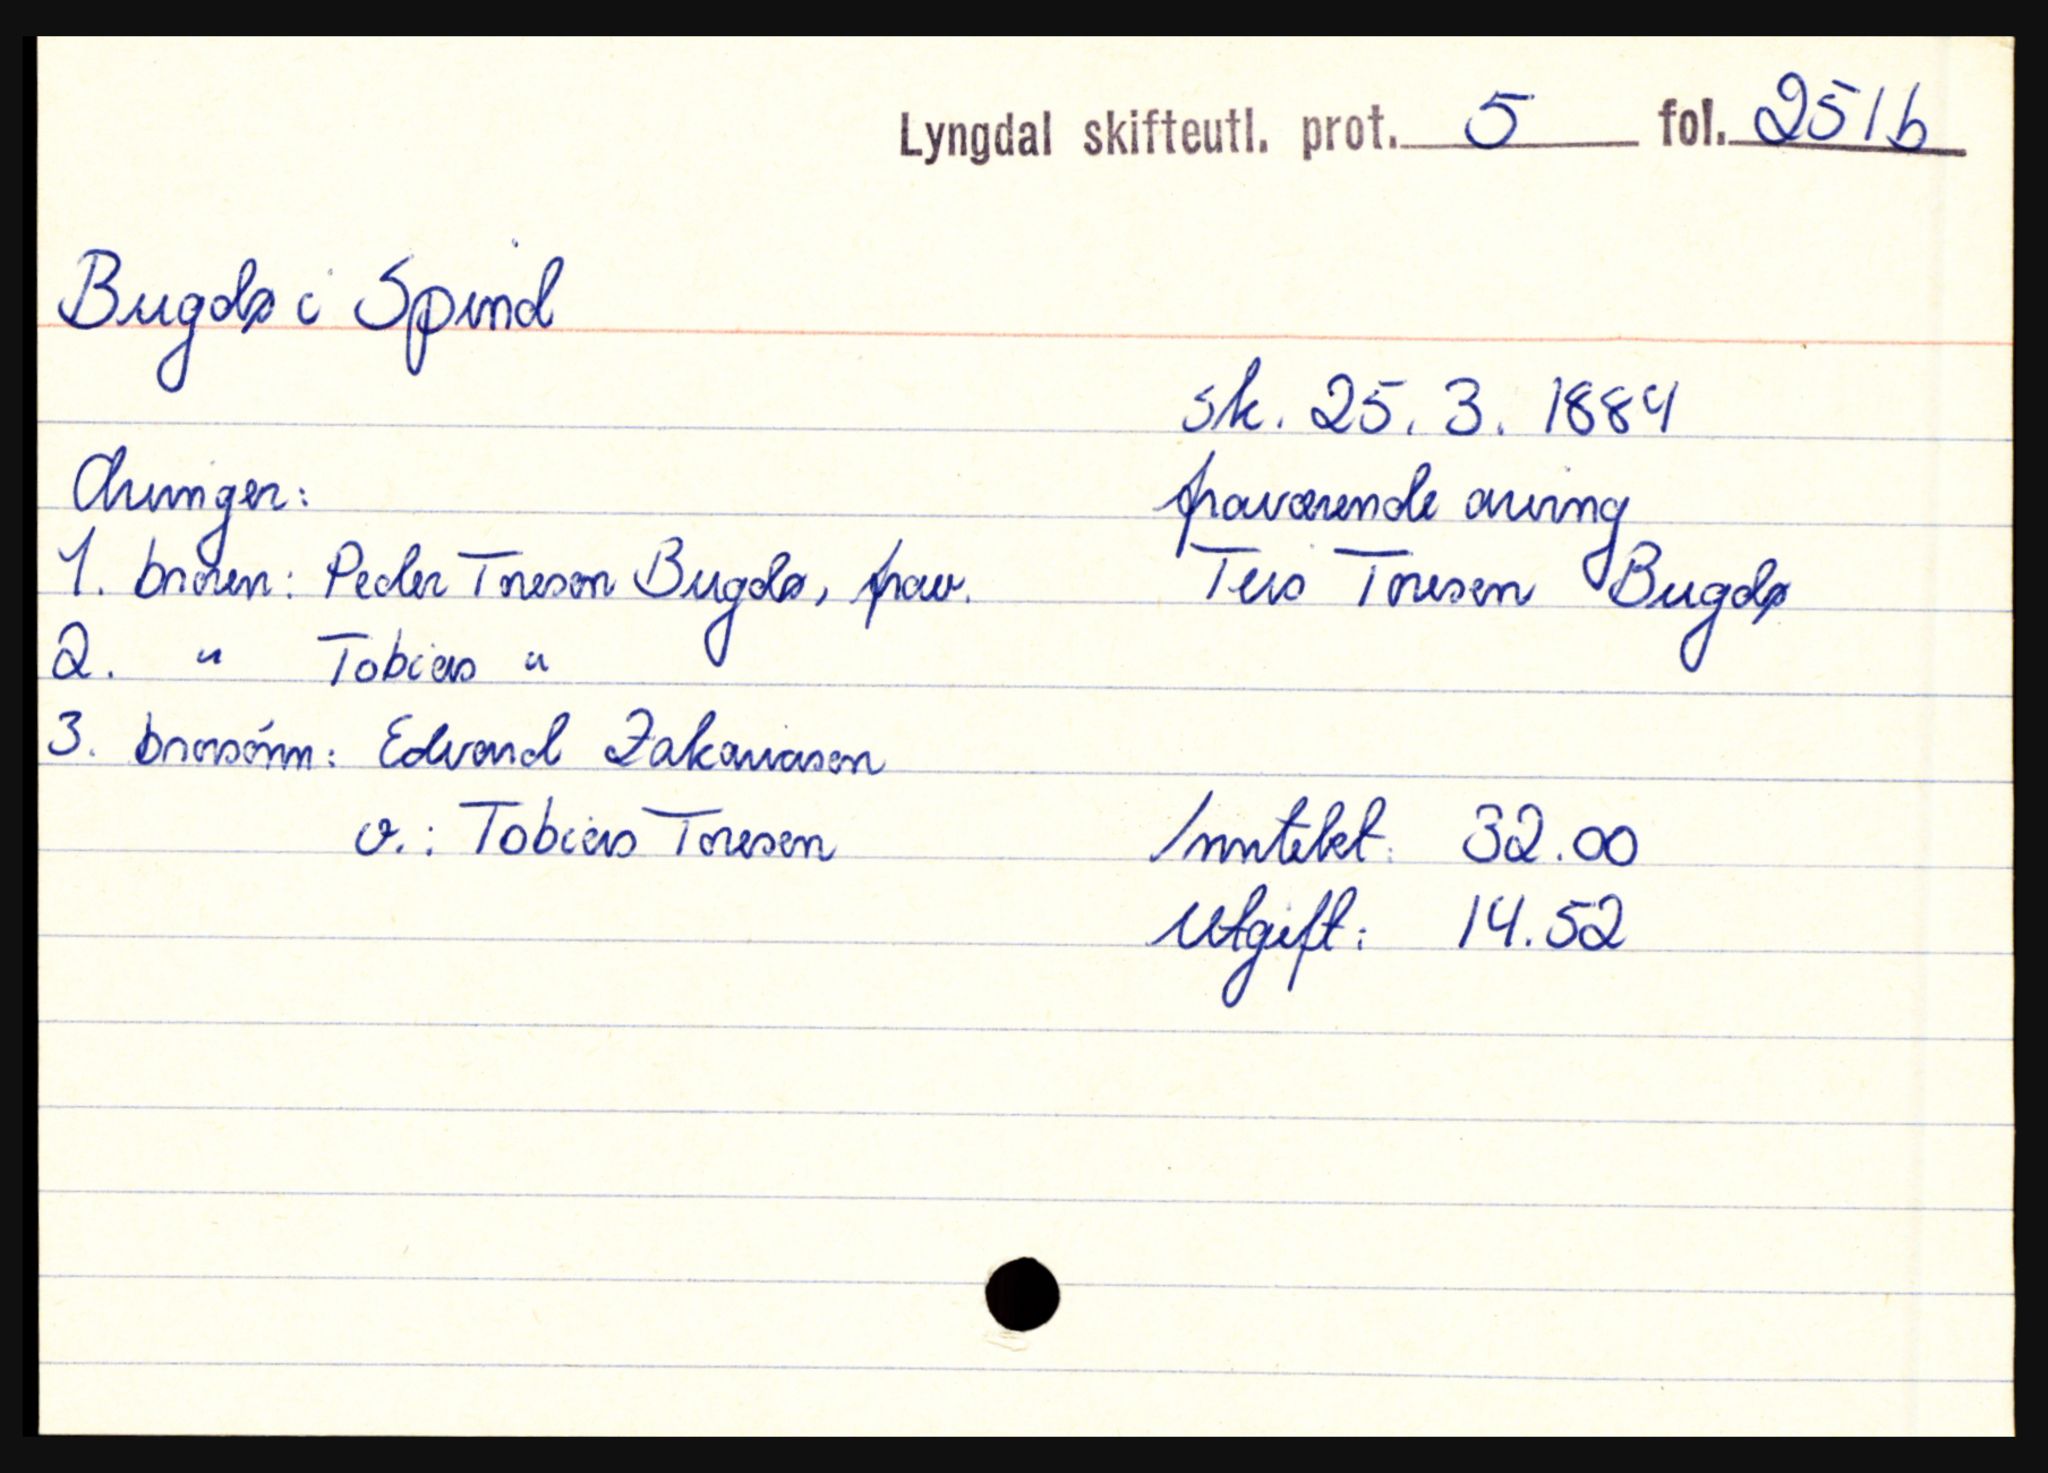 Lyngdal skifteutl. prot. 5 fol. 251b
Bugdø i Spind
sk. 25.3.1884
Arvinger:
fraværende arving
Teis Toresen Bugdø
1. broren: Peder Toresen Bugdø, frav.
2. " Tobias "
3. brorsønn: Edvard Zakariasen
v.: Tobias Toresen
Inntekt: 32.00
Utgift: 14.52